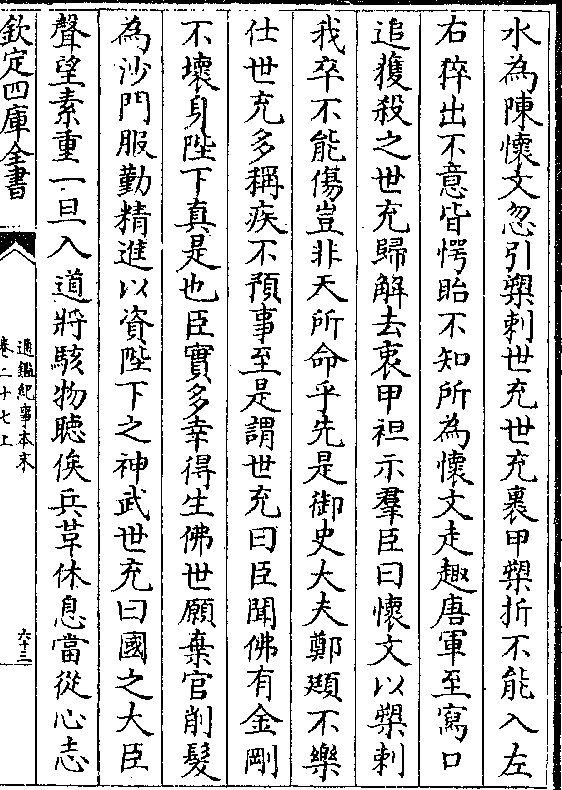 水為陳懷文忽引槊刺世充世充裏甲槊折不能入左
右猝出不意皆愕眙不知所為懷文走趣唐軍至寫口
追獲殺之世充歸解去衷甲袒示羣臣曰懷文以槊刺
我卒不能傷豈非天所命乎先是御史大夫鄭頲不樂
仕世充多稱疾不預事至是謂世充曰臣聞佛有金剛
不壞身陛下真是也臣實多幸得生佛世願棄官削髮
為沙門服勤精進以資陛下之神武世充曰國之大臣
聲望素重一旦入道將駭物聽俟兵革休息當從心志
欽定四庫全書
通鑑紀事本末
卷二十七上
六十三